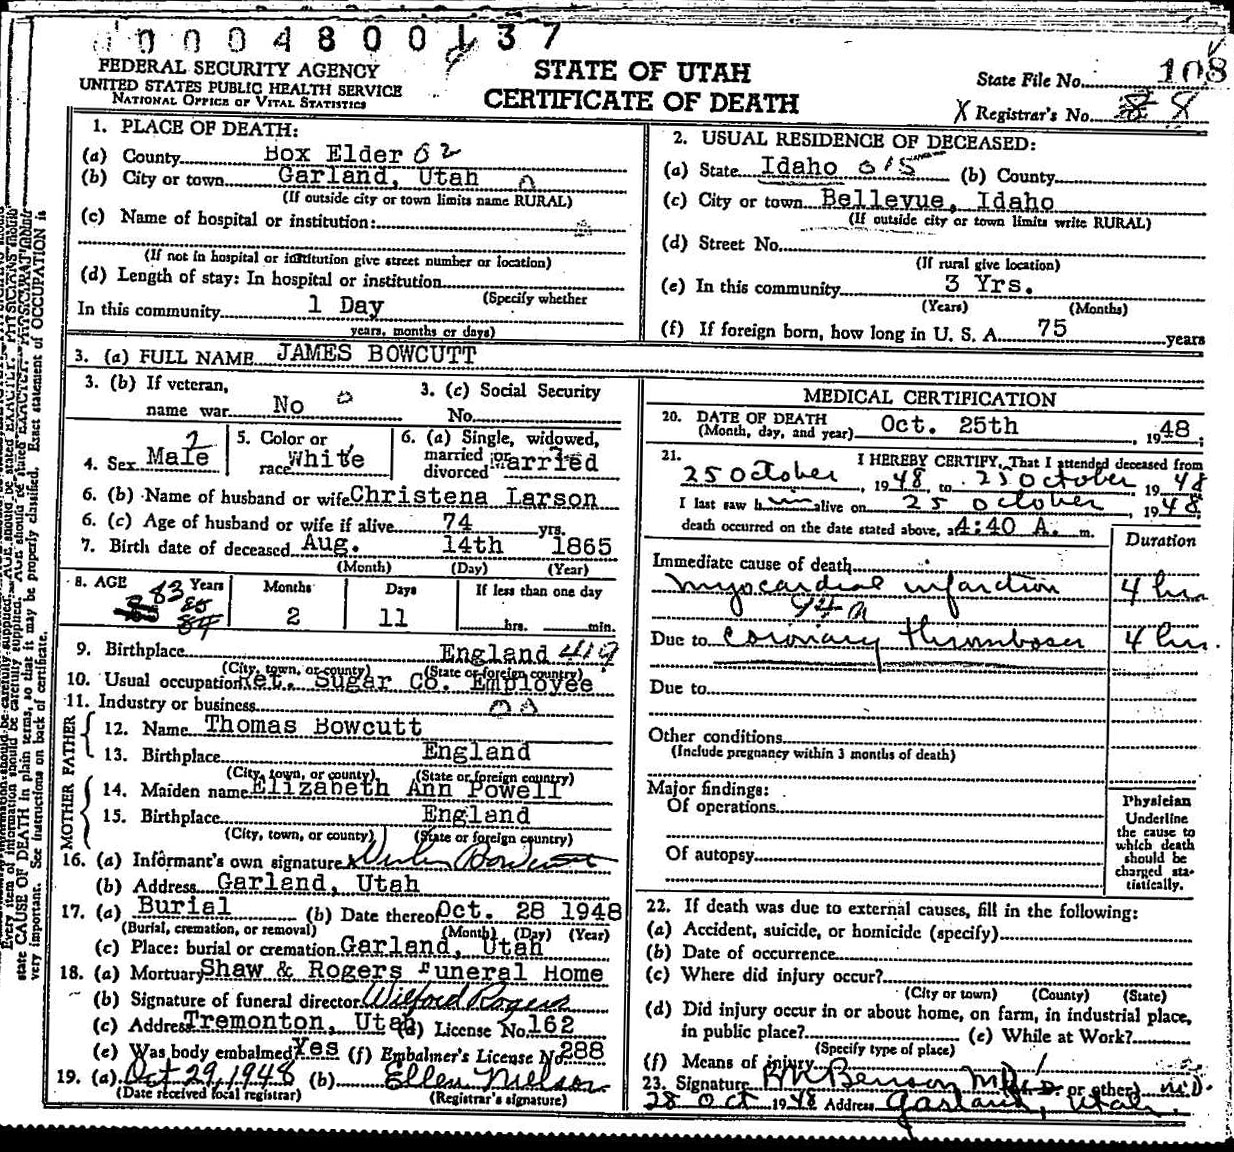 0004800137
FEDERAL SECURITY AGENCY
UNITED STATES PUBLIC HEALTH SERVICE
NATIONAL OFFICE OF VITAL STATISTICS
STATE OF UTAH
CERTIFICATE OF DEATH
State File No. 108
X Registrar's No. 8
1. PLACE OF DEATH:
(a) County Box Elder 02
(b) City or town Garland, Utah 0
(If outside city or town limits name RURAL)
(c) Name of hospital or institution:
(If not in hospital or institution give street number or location)
(d) Length of stay: In hospital or institution
(Specify whether
In this community 1 Day
years, months or days)
2. USUAL RESIDENCE OF DECEASED:
(a) State Idaho 615 (b) County
(c) City or town Bellevue, Idaho
(If outside city or town limits write RURAL)
(d) Street No.
(If rural give location)
(e) In this community 3 Yrs.
(Years) (Months)
(f) If foreign born, how long in U. S. A. 75 years
3. (a) FULL NAME JAMES BOWCUTT
3. (b) If veteran,
name war No 0
3. (c) Social Security
No.
4. Sex Male 2
5. Color or
race White
6. (a) Single, widowed,
married or
divorced Married
6. (b) Name of husband or wife Christena Larson
6. (c) Age of husband or wife if alive 74 yrs.
7. Birth date of deceased Aug. 14th 1865
(Month) (Day) (Year)
8. AGE Years Months Days If less than one day
83 2 11 hrs. min.
84
9. Birthplace England 419
(City, town, or county) (State or foreign country)
10. Usual occupation Ret. Sugar Co. Employee
11. Industry or business
FATHER
12. Name Thomas Bowcutt
13. Birthplace England
(City, town, or county) (State or foreign country)
MOTHER
14. Maiden name Elizabeth Ann Powell
15. Birthplace England
(City, town, or county) (State or foreign country)
16. (a) Informant's own signature Bowcutt
(b) Address Garland, Utah
17. (a) Burial (b) Date thereof Oct. 28 1948
(Burial, cremation, or removal) (Month) (Day) (Year)
(c) Place: burial or cremation Garland, Utah
18. (a) Mortuary Shaw & Rogers Funeral Home
(b) Signature of funeral director Wilford Rogers
(c) Address Tremonton, Utah (d) License No. 162
(e) Was body embalmed Yes (f) Embalmer's License No 288
19. (a) Oct 29, 1948 (b) Ellen Nielson
(Date received local registrar) (Registrar's signature)
MEDICAL CERTIFICATION
20. DATE OF DEATH
(Month, day, and year) Oct. 25th, 1948;
21. I HEREBY CERTIFY, That I attended deceased from
25 October, 1948, to 25 October, 1948
I last saw him alive on 25 October, 1948
death occurred on the date stated above, at 4:40 A. m.
Duration
Immediate cause of death
myocardial infarction 4 hrs
94a
Due to coronary thrombosis 4 hrs.
Due to
Other conditions
(Include pregnancy within 3 months of death)
Major findings:
Of operations
Of autopsy
Physician
Underline
the cause to
which death
should be
charged sta-
tistically.
22. If death was due to external causes, fill in the following:
(a) Accident, suicide, or homicide (specify)
(b) Date of occurrence
(c) Where did injury occur?
(City or town) (County) (State)
(d) Did injury occur in or about home, on farm, in industrial place,
in public place? (e) While at Work?
(Specify type of place)
(f) Means of injury
23. Signature Benson MD (M.D. or other) M.D.
28 Oct 1948 Address Garland, Utah.
state CAUSE OF DEATH in plain terms, so that it may be properly classified. Exact statement of OCCUPATION is
very important. See instructions on back of certificate.